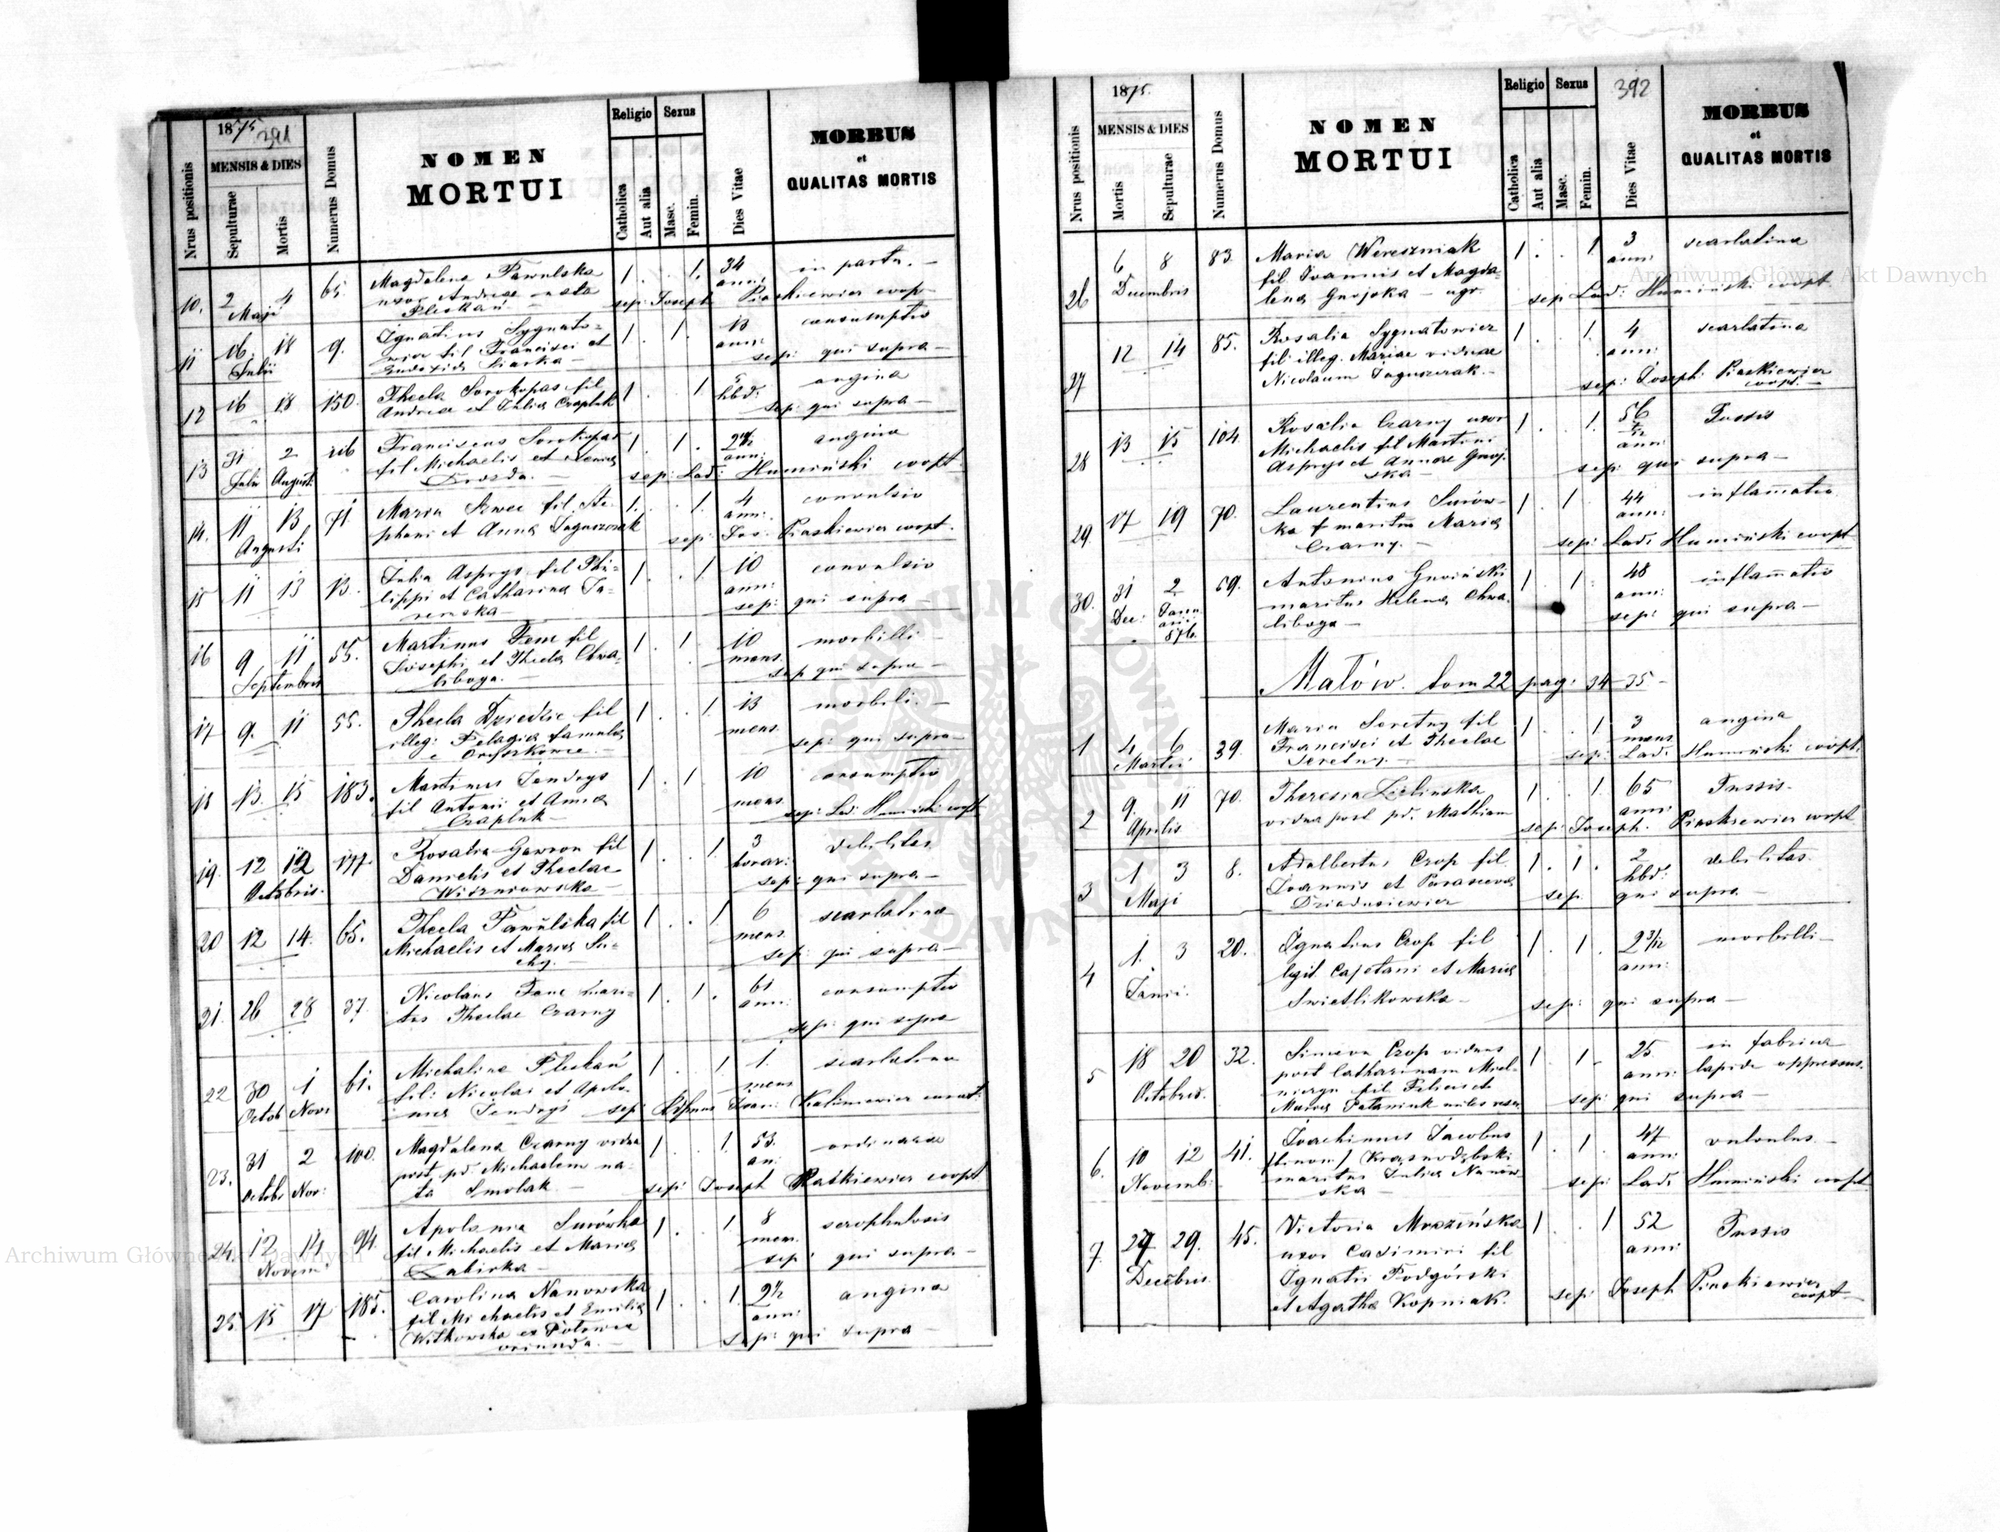 1875
391
Nrus positionis
MENSIS & DIES
Sepulturae
Mortis
Numerus Domus
NOMEN
MORTUI
Religio
Catholica
Aut alia
Sexus
Masc.
Femin.
Dies Vitae
MORBUS
et
QUALITAS MORTIS
10. 2 4 65 Magdalena Pawulska 1 . . 1. 34 in partu. —
Maji uxor Andreae nata anni
Pleskań — sep: Joseph Piaskiewicz coop
11 16. 18 9. Ignatius Sygnato- 1 . 1 . 13 consumptio
Julii wicz fil Francisci et anni
sep: qui supra —
12 16 18 150. Thecla Sorokopas fil 1 . . 1 5 angina
Andreae et Julia Czapluk hbd:
sep: qui supra —
13 31 2 Franciscus Sorokopas 1 . 1 . angina
Julii August. fil Michaelis et anni
Drozda. — sep: Lad: Humiński coopt.
14. 11 13 71. Maria Szwec fil Ste- 1. . . 1. 4 convulsio
Augusti phani et Anna Jaguszczak anni:
sep: Jos: Piaskiewicz coopt.
15 11 13 13. Julia Asprys fil Phi- 1 . . 1 10 convulsio
lippi et Catharina anni:
sep: qui supra —
16 9 11 55. Martinus Fene fil 1. . 1 . 10 morbilli
Septembris Josephi et Thecla Chwa- mens
liboga. — sep qui supra —
17 9. 11 55. Thecla Dziedzic fil 1 . . 1. 13 morbili. —
illeg: Pelagia famula mens
sep: qui supra —
18 13. 15 183. Martinus Jendrys 1 . 1 10 consumptio
fil Antonii et Anna mens.
Czapluk — sep: Lad: Humiński coopt
19. 12 12 177. Rosalia Gawron fil 1 . . 1. 3 debilitas
Octobris. Danielis et Theclae horar:
Wiszniowska — sep: qui supra —
20 12 14. 65. Thecla Pawulska fil 1 . . 1 6 scarlatina
Michaelis et Maria Su- mens.
chy. — sep: qui supra —
21. 26 28 37. Nicolaus Fene mari- 1. . 1. . 61 consumptio
tus Theclae Czarny anni:
sep: qui supra
22 30 1 61. Michalina Pleskań 1 . . 1 1. scarlatina
Octob Nov: fil: Nicolai et Apolo- mens
nia Jendrys sep:
23. 31 2 100. Magdalena Czarny vidua 1 . . 1. 53. ordinaria
Octobr Nov: post pd: Michaelem na- an:
ta Smolak — sep: Joseph Piaskiewicz coopt
24. 12 14 94. Apolonia Surówka 1. . . 1 8 scrophulosis
Novem: fil Michaelis et Maria mens.
Zabirka — sep: qui supra —
25. 15 17 185. Carolina Nanowska 1 . . 1. 2½ angina
fil Michaelis et Emilia anni
Witkowska ex Potowce
oriunda. — sep: qui supra —
1875.
392
Nrus positionis
MENSIS & DIES
Mortis
Sepulturae
Numerus Domus
NOMEN
MORTUI
Religio
Catholica
Aut alia
Sexus
Masc.
Femin.
Dies Vitae
MORBUS
et
QUALITAS MORTIS
26 6 8 83. Maria Wereszniak 1 . . 1. 3 scarlatina
Decembris fil Joannis et Magda- anni:
lena Gnojska — agr. sep: Lad: Humiński coopt.
27 12 14 85. Rosalia Sygnatowicz 1 . . 1. 4 scarlatina
fil illeg. Mariae viduae anni:
Nicolaum Jaguszczak. — sep: Joseph: Piaskiewicz
coopt. —
28 13 15 104. Rosalia Czarny uxor 1 . . 1. 56 Tussis
Michaelis fil Martini anni:
Asprys et Annae Gnoj-
ska — sep: qui supra —
29. 17 19 70. Laurentius Surów- 1 . 1 . 44 inflamatio
ka maritus Maria anni:
Czarny. — sep: Lad: Humiński coopt
30. 31 2 59. Antonius Gnoiński 1 . 1. . 48 inflamatio
Dec: Janu. maritus Helena Chwa- anni:
876. liboga — sep: qui supra —
Małów. tom 22 pag: 34–35 —
1 4 6 39. Maria Seretny fil 1 . . 1. 3 angina
Martii Francisci et Theclae mens
Seretny. — sep: Lad: Humiński coopt.
2 9. 11 70. Theresia Zielinska 1 . . 1. 65 Tussis.
Aprilis vidua post pd. Mathiam anni:
sep: Joseph. Piaskiewicz coopt.
3 1 3 8. Adalbertus Czop fil 1. . 1. . 2 debilitas.
Maji Joannis et Parascevia hbd:
Dziadusiewicz sep: qui supra —
4 1. 3 20. Ignatius Czop fil 1. . 1. . 2 3/12 morbilli —
Junii. legit. Cajetani et Maria anni:
Swietlikowska — sep: qui supra —
5 18 20 32. Simeon Czop viduus 1 . 1 . 25. in fabrica
Octobris. post Catharinam anni: lapide oppressus.
sep: qui supra —
6. 10 12 41. Joachimus Jacobus 1 . 1 . 47 vulvulus. —
Novemb: /binom/ Krasnodębski anni:
maritus Julia Nanow-
ska — sep: Lad: Humiński coopt
7. 27 29. 45. Victoria Mroziński 1 . . 1 52 Tussis
Decebris. uxor Casimiri fil anni:
Ignatii Podgórski
et Agatha Kopniak. sep: Joseph Piaskiewicz
coopt —
Archiwum Główne Akt Dawnych
Archiwum Główne Akt Dawnych
ARCHIWUM GŁÓWNE AKT DAWNYCH